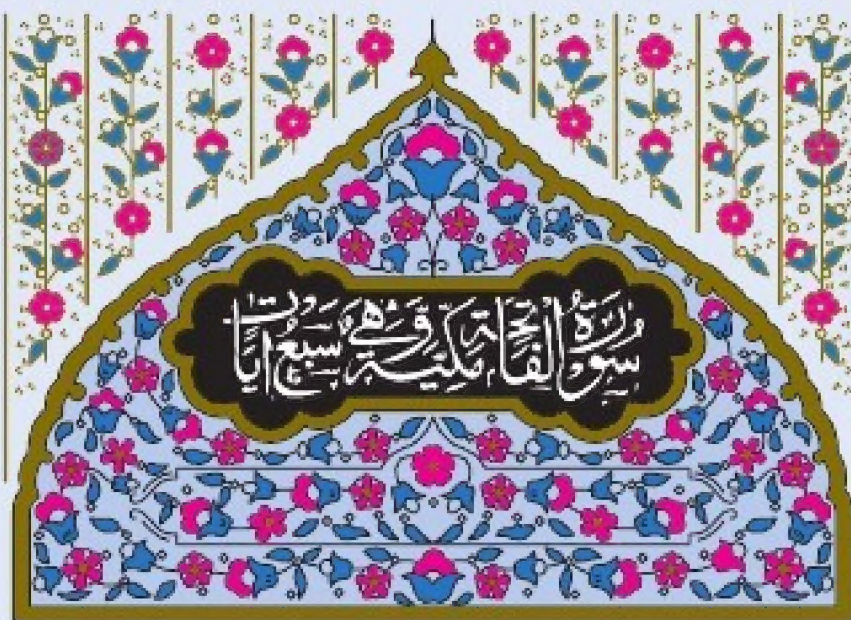 سُورَةُ الْفَاتِحَةِ مَكِّيَّة وَهِيَ سَبْعُ آيَات